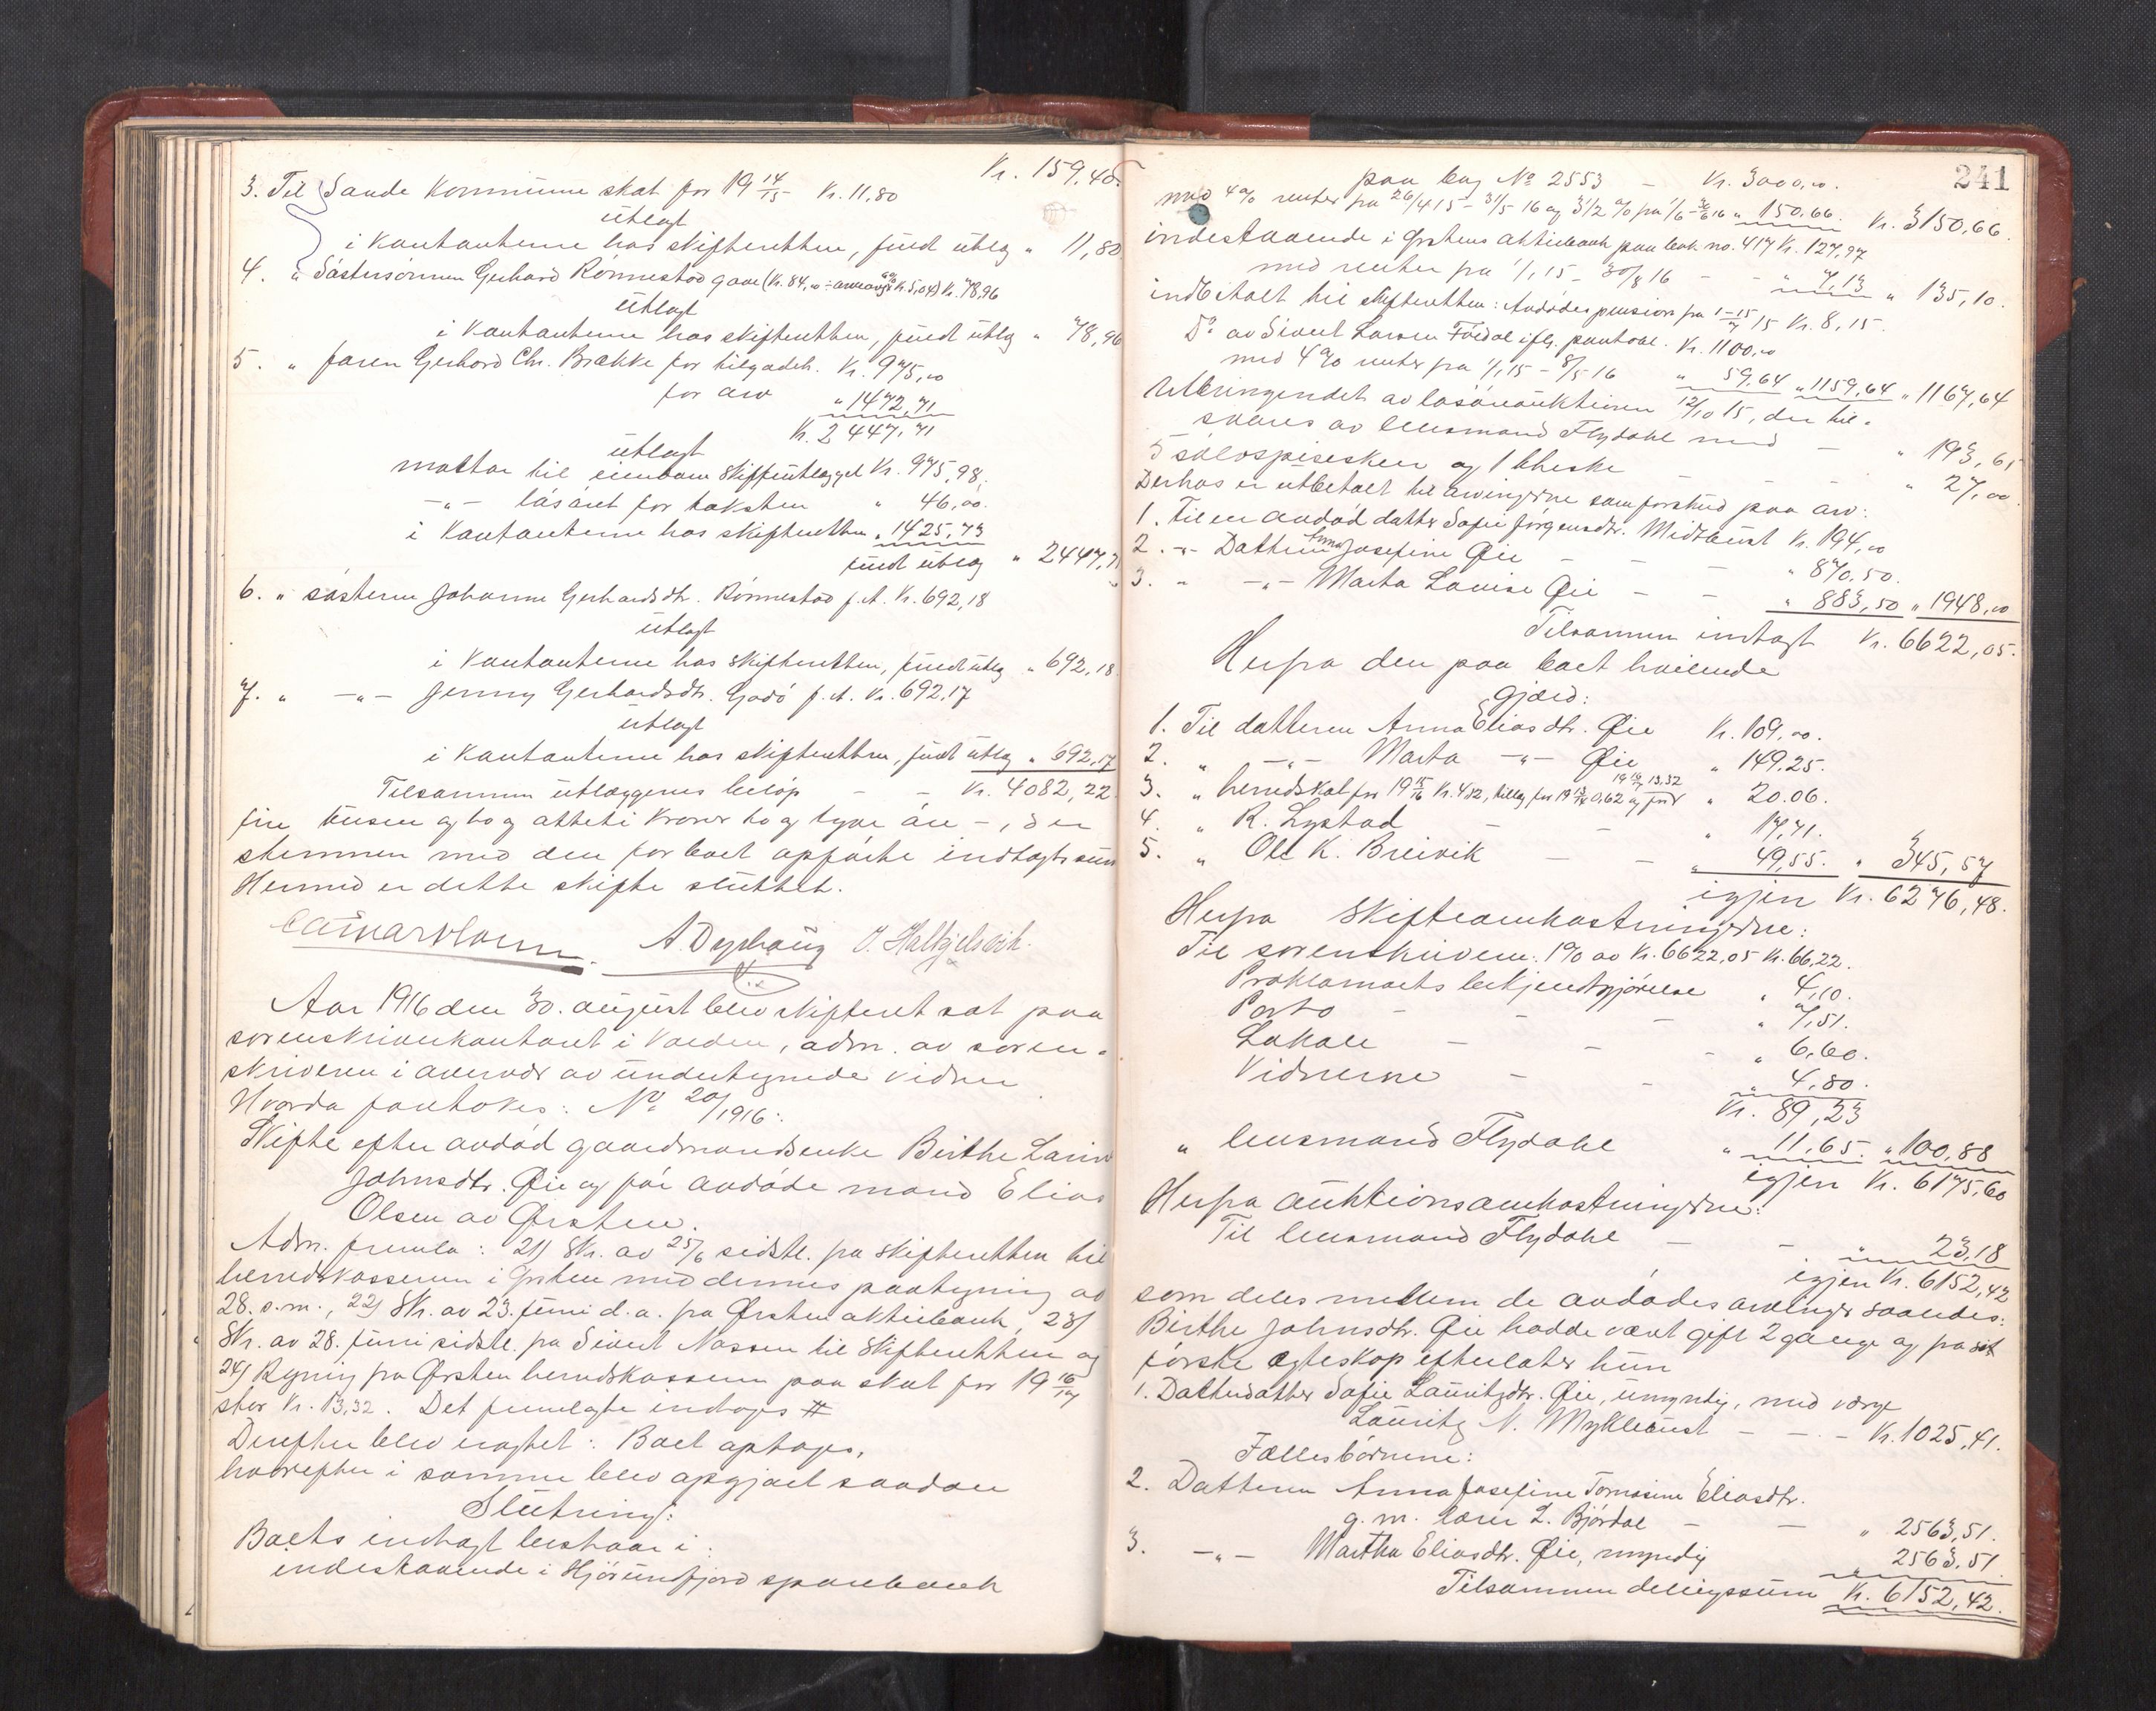 Kr. 159,40.
3. Til Sande Kommune skat for 19 14/15 Kr. 11,80
utlagt
i Kontanterne hos skifteretten, fuldt utlæg " 11,80
4. " Søstersønnen Gerhard Rønnestad gave (Kr. 84,00 ÷ arveavg. 6% Kr. 5,04) Kr. 78,96
utlagt
i Kontanterne hos skifteretten, fuldt utlæg " 78,96
5. " faren Gerhard Chr. Brække for tilgodeh. Kr. 975,00
for arv " 1472,71
Kr. 2447,71
utlagt
mottar til eiendom Skifteutlægget Kr. 975,98.
-"- løsøret for taksten " 46,00.
i Kontanterne hos skifteretten " 1425,73
fuldt utlæg " 2447,71
6. " søsteren Johanne Gerhardsdtr. Rønnestad f. A. Kr. 692,18
utlagt
i Kontanterne hos skifteretten, fuldt utlæg " 692,18
7. " -"- Jenny Gerhardsdtr. Godø f. A. Kr. 692,17
utlagt
i Kontanterne hos skifteretten, fuldt utlæg " 692,17
Tilsammen utlæggenes beløp - - Kr. 4082,22
fire tusen og to og otteti Kroner to og tyve øre -, der
stemmer med den for boet opførte indtægtssum
Hermed er dette skifte sluttet.
A. Dyrhaug
Aar 1916 den 30. august blev skifteret sat paa
sorenskriverkontoret i Volden, adm. av soren-
skriveren i overvær av undertegnede vidner
Hvorda foretokes: No 20/1916:
Skifte efter avdød gaardmandsenke Birthe Larine
Johnsdtr. Øie og før avdøde mand Elias
Olsen av Ørsten.
Adm. fremla: 21) Skr. av 25/6 sidstl. fra skifteretten til
herredskassereren i Ørsten med dennes paategning av
28. s.m., 22) Skr. av 23. juni d.a. fra Ørsten aktiebank, 23)
Skr. av 28. juni sidstl. fra Sivert Nassen til Skifteretten og
24) Regning fra Ørsten herredskasserer paa skat for 19 16/17
stor Kr. 13,32. Det fremlagte indtages #
Derefter blev eragtet: Boet optages,
hvorefter i samme blev opgjort saadan
Slutning:
Boets indtægt bestaar i:
indestaaende i Hjørundfjord sparebank
241
paa bog No 2553 - Kr. 3000,00.
med 4% renter fra 26/4 15 - 31/5 16 og 3 1/2 % fra 1/6 - 30/8 16 " 150.66. Kr. 3150,66.
indestaaende i Ørstens aktiebank paa bok no. 417 Kr. 127,97
med renter fra 1/1 15 - 30/8 16 - - " 7,13 " 135,10.
indbetalt til skifteretten: Avdødes pension fra 1-15/7 15 Kr. 8,15.
Do av Sivert Larsen Föidal ifl. pantobl. Kr. 1100,00
med 4% renter fra 1/1 15 - 8/5 16 " 59.64 " 1159,64 " 1167,64
Utbringendet av løsøreauktionen 12/10 15, der til-
svares av lensmand Flydahl med - " 193,65
5 sølvspiseskeer og 1 theske - - " 27,00.
Derhos er utbetalt til arvingerne som forskud paa arv:
1. Til en avdød datter Sofie Jörgensdtr. Midtbust Kr. 194,00
2. -"- Datteren Anna Josefine Øie - - - " 870.50.
3. " -"- Marta Louise Øie - - " 883,50 " 1948,00
Tilsammen indtægt Kr. 6622,05.
Herfra den paa boet hvilende
gjæld:
1. Til datteren Anna Eliasdtr. Øie Kr. 109,00.
2. " -"- Marta -"- Øie " 149.25.
3. " herredskat for 19 15/16 Kr. 4,12, tillæg for 19 13/14 0,62 og for 19 16/17 13.32 " 20.06.
4. " R. Lystad - - " 17,71.
5. " Ole K. Breivik - - " 49,55. " 345,57
igjen Kr. 6276,48.
Herfra Skifteomkostningerne:
Til sorenskriveren: 1% av Kr. 6622,05 Kr. 66,22.
Proklamaets bekjendtgjørelse " 4,10.
Porto - - - " 7,51.
Lokale - - - " 6,60.
Vidnerne - - " 4,80.
Kr. 89,23
" lensmand Flydahl " 11,65. " 100,88
igjen Kr. 6175,60
Herfra auktionsomkostningerne:
Til lensmand Flydahl - - " 23,18
igjen Kr. 6152,42
som deles mellem de avdødes arvinger saaledes:
Birthe Johnsdtr. Øie hadde vært gift 2 gange og fra sit
første egteskap efterlater hun
1. Datterdatter Sofie Lauritzdtr. Øie, umyndig, med værge
Lauritz N. Myklebust - - - Kr. 1025,41.
Fællesbørnene:
2. Datteren Anna Josefine Tomasine Eliasdtr.
g. m. lærer L. Bjørdal - - " 2563,51.
3. -"- Martha Eliasdtr. Øie, myndig " 2563.51
Tilsammen delingssum Kr. 6152,42.